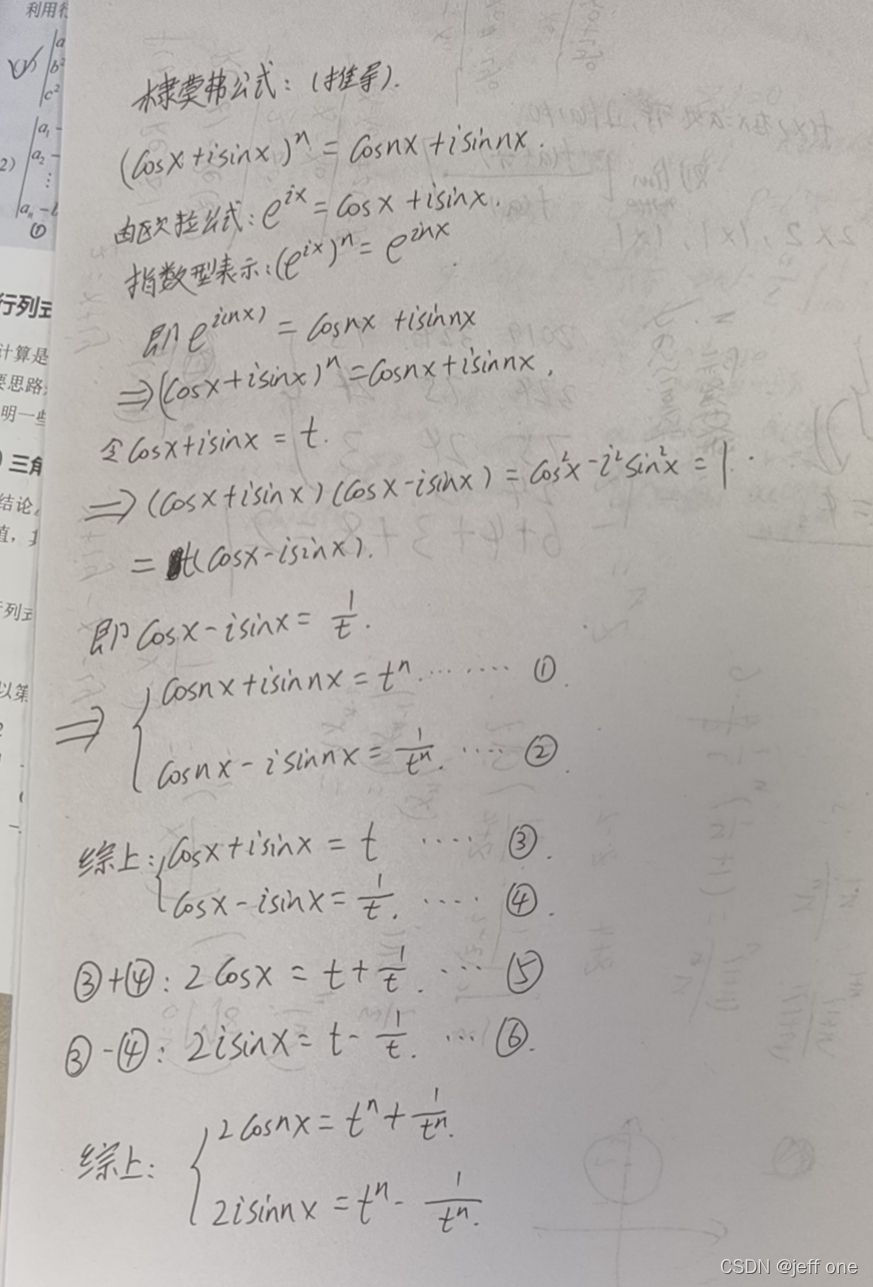 利用行
棣莫弗公式：(推导).
(cosx+isinx)ⁿ = cosnx+isinnx.
由欧拉公式：e^{ix} = cosx+isinx.
指数型表示：(e^{ix})ⁿ = e^{inx}.
即 e^{i(nx)} = cosnx +isinnx
⇒(cosx+isinx)ⁿ=cosnx+isinnx.
令cosx+isinx = t.
⇒(cosx+isinx)(cosx-isinx) = cos²x-i²sin²x = 1.
= t(cosx-isinx).
即 cosx-isinx= 1/t.
⇒ { cosnx+isinnx = tⁿ ········ ①.
cosnx-isinnx = 1/tⁿ. ···· ②.
综上：{ cosx+isinx = t ···· ③.
cosx-isinx= 1/t. ···· ④.
③+④: 2cosx = t+ 1/t. ··· ⑤
③-④: 2isinx= t- 1/t. ··· ⑥.
综上： { 2cosnx= tⁿ+ 1/tⁿ.
2isinnx = tⁿ- 1/tⁿ.
行列式
计算是
要思路
明一些
三角
结论
值
列式
以第
CSDN @jeff one